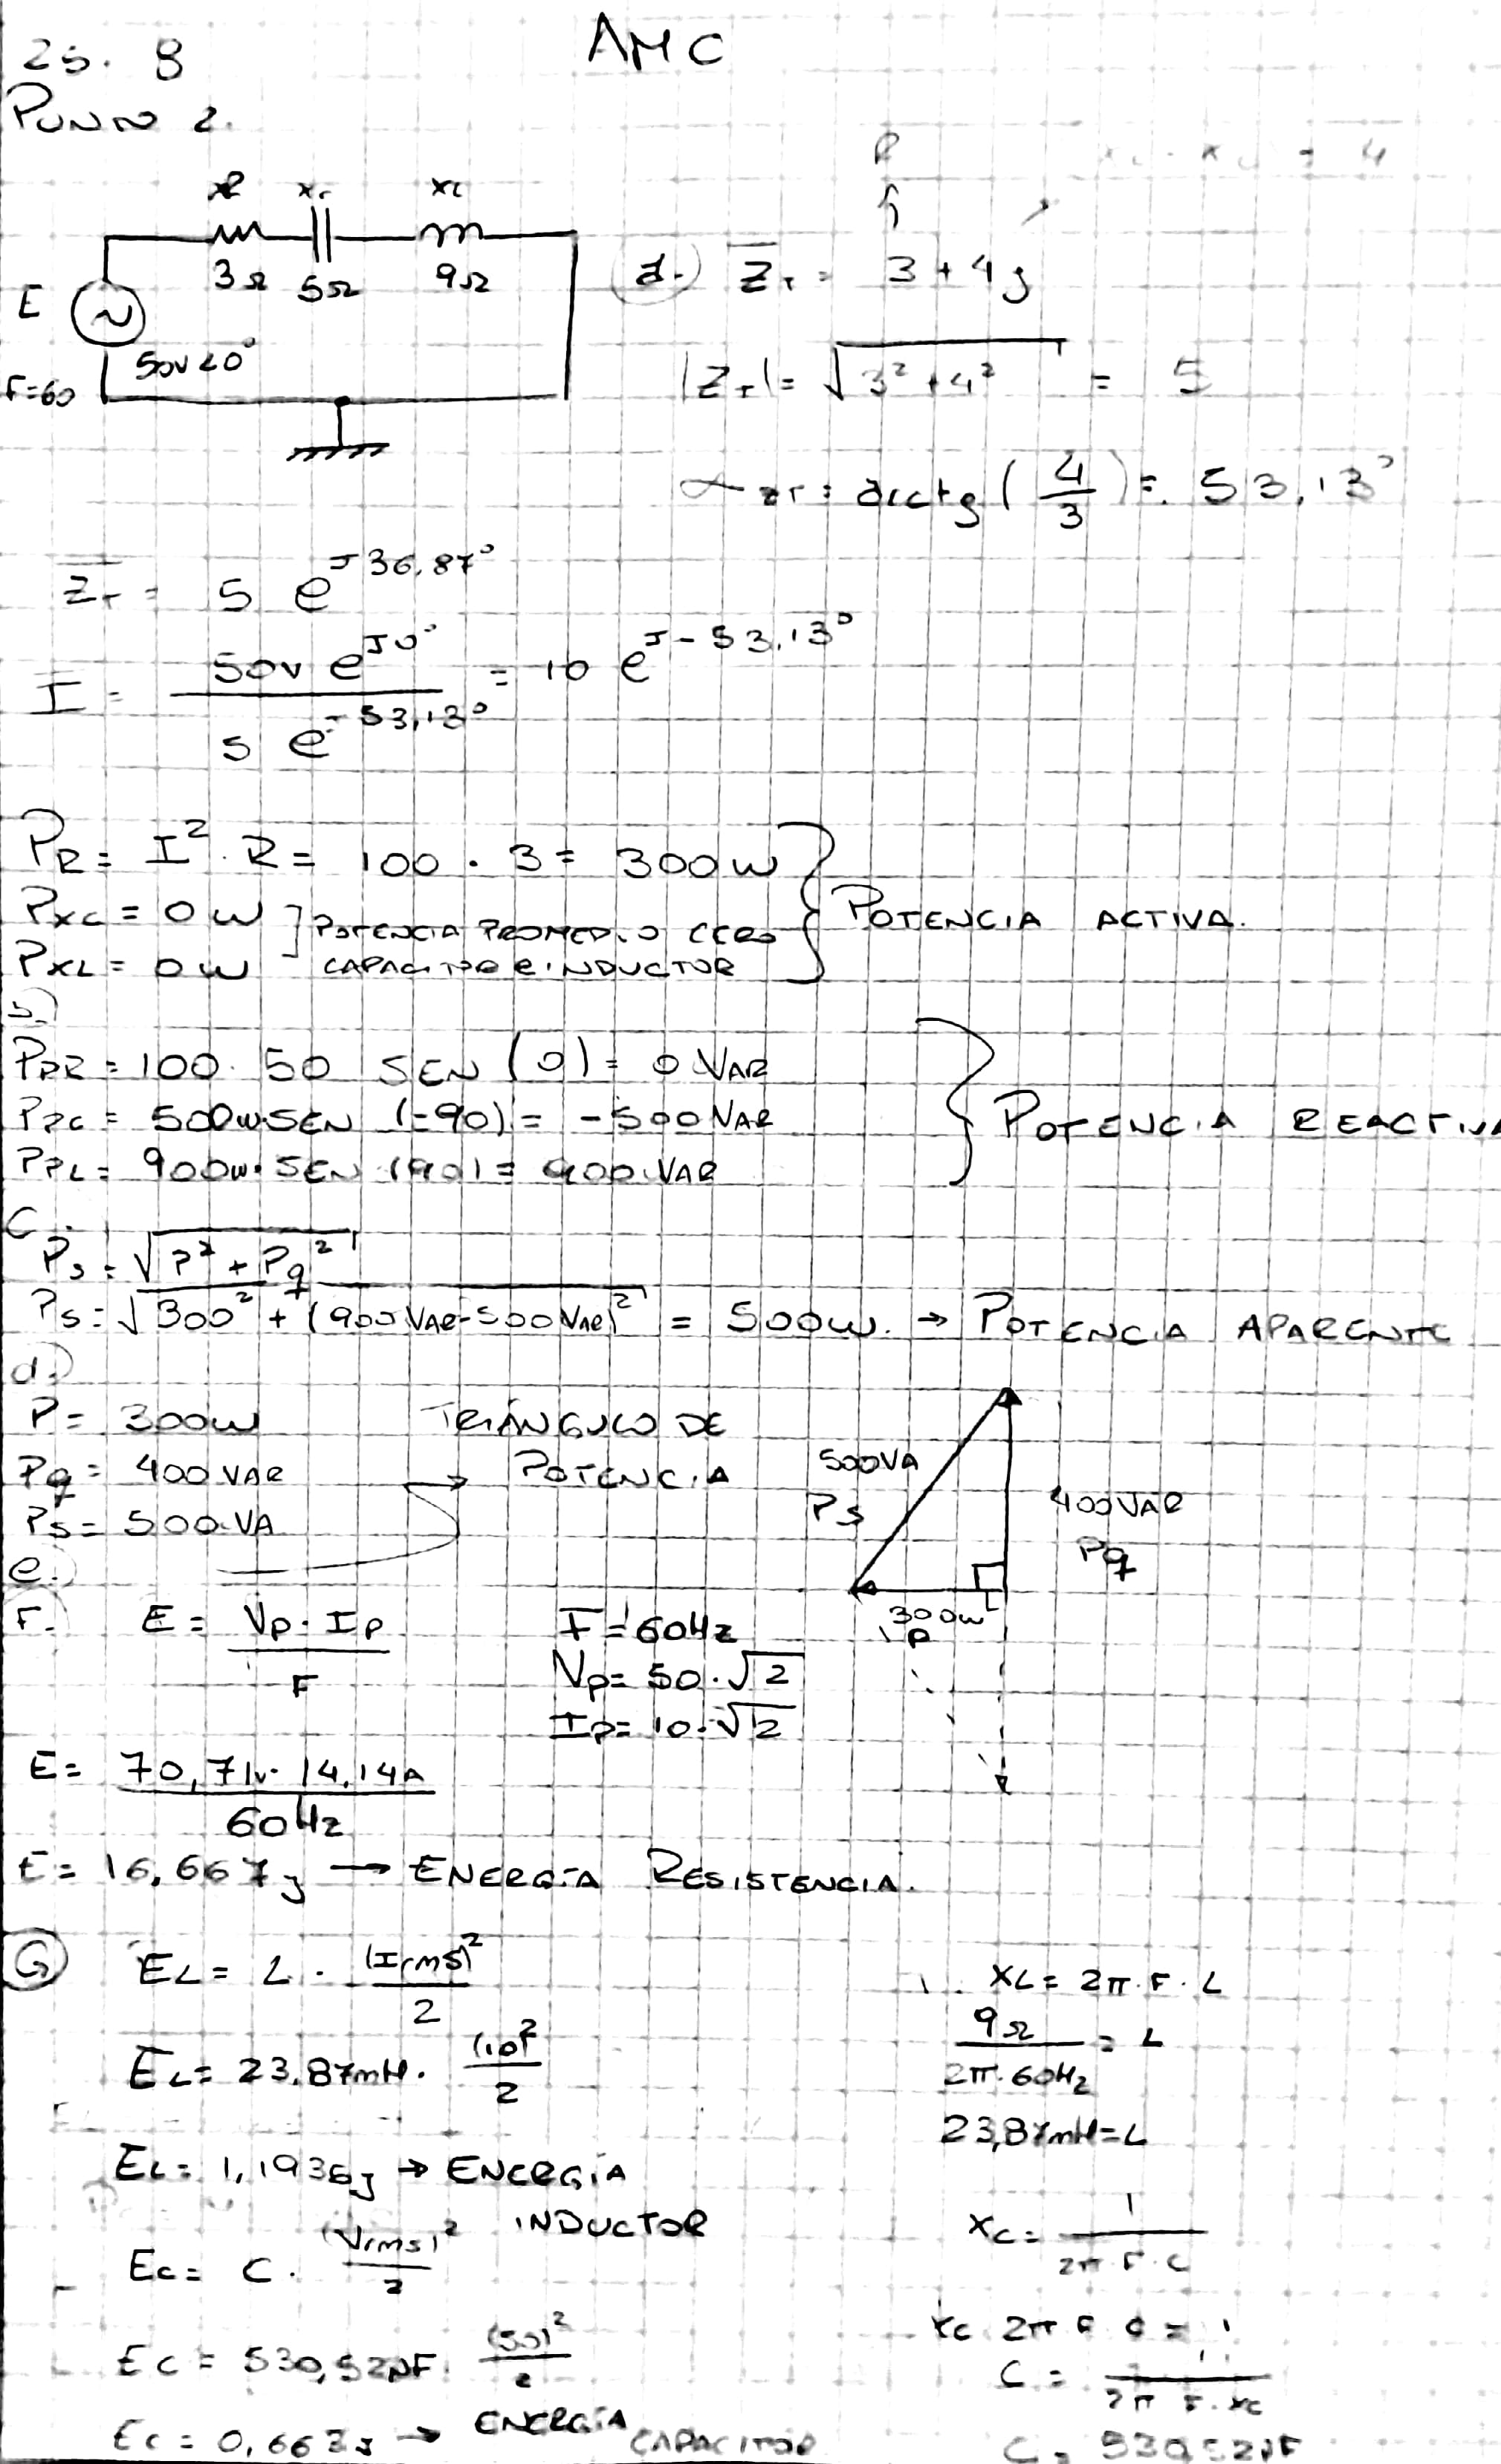 AMC
25. 8
PUNTO 2.
R
XL - XC = 4
R XC XL
3Ω 5Ω 9Ω
E
50V∠0°
F=60
a.) ZT = 3 + 4j
|ZT| = √3² + 4² = 5
∝ZT = arctg (4/3) = 53,13°
ZT = 5 e^J36,87°
I = 50V e^J0° / 5 e^-53,13° = 10 e^J-53,13°
PR = I² . R = 100 . 3 = 300W
PXC = 0W
PXL = 0W
POTENCIA PROMEDIO CERO
CAPACITOR E INDUCTOR
POTENCIA ACTIVA.
b.)
PPR = 100 . 50 SEN (0) = 0 VAR
PPC = 500W.SEN (-90) = -500 VAR
PPL = 900W.SEN (90) = 900 VAR
POTENCIA REACTIVA
C.
Ps = √P² + Pq²
Ps = √300² + (900VAR-500VAR)² = 500W. → POTENCIA APARENTE
d.)
P = 300W
Pq = 400 VAR
Ps = 500 VA
TRIÁNGULO DE
POTENCIA
500VA
Ps
400VAR
Pq
300W
P
e.)
F. E = Vp . Ip / F
F = 60Hz
Vp = 50.√2
Ip = 10.√2
E = 70,71V. 14,14A / 60Hz
E = 16,667j → ENERGÍA RESISTENCIA.
G EL = L . (Irms)² / 2
EL = 23,87mH. (10)² / 2
EL = 1,1936j → ENERGÍA
INDUCTOR
EC = C . (Vrms)² / 2
EC = 530,52µF. (50)² / 2
EC = 0,663j → ENERGÍA CAPACITOR
XL = 2π.F.L
9Ω / 2π.60Hz = L
23,87mH = L
XC = 1 / 2π.F.C
XC 2π F C = 1
C = 1 / 2π F.XC
C = 530,52µF